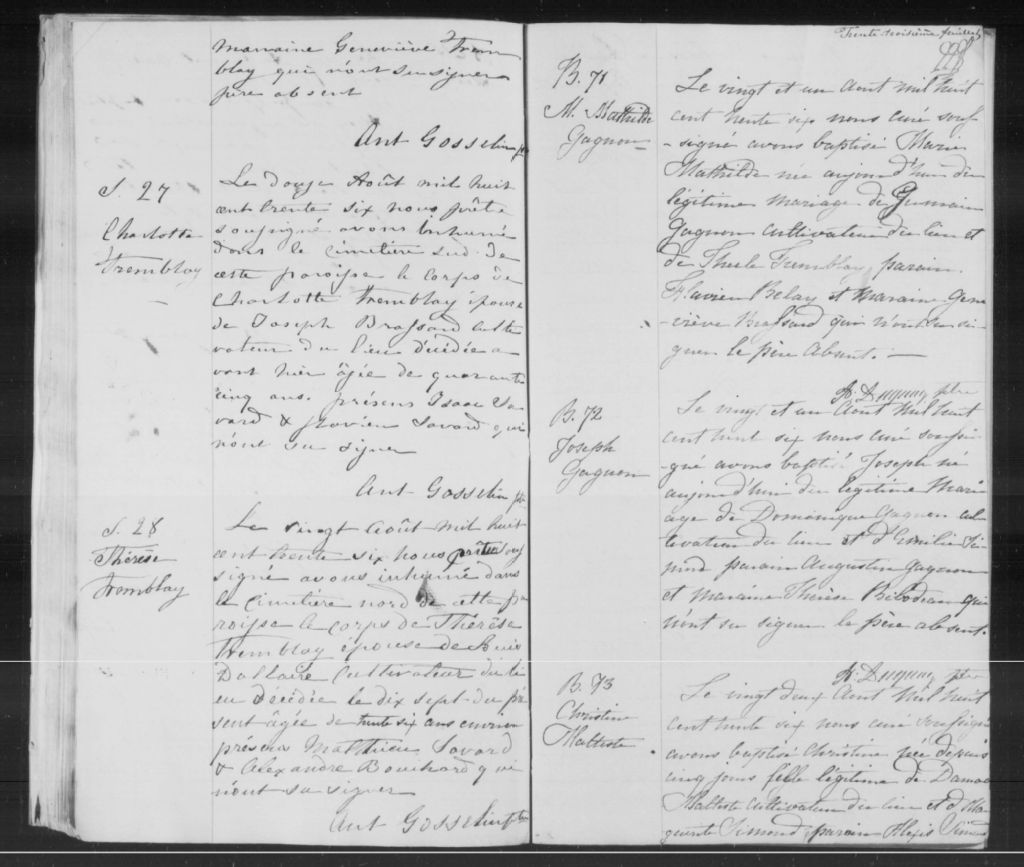 marraine Geneviève Trem
blay qui n'ont su signer
père absent
Ant Gosselin ptr
S. 27
Charlotte
Tremblay
Le douze Août mil huit
cent trente six nous prêtre
soussigné avons inhumé
dans le cimetière sud de
cette paroisse le corps de
Charlotte Tremblay épouse
de Joseph Brassard culti
vateur du lieu décédée a
vant hier âgée de quarante
cinq ans. présens Isaac Sa
vard & Flavien Savard qui
n'ont su signer
Ant Gosselin ptr
S. 28
Thérèse
Tremblay
Le vingt Août mil huit
cent trente six nous prêtre sous
signé avons inhumé dans
le cimetière nord de cette pa
roisse le corps de Thérèse
Tremblay épouse de Louis
Dallaire Cultivateur du li
eu décédée le dix sept du pré
sent âgée de trente six ans environ
présens Matthieu Savard
& Alexandre Bouchard qui
n'ont su signer
Ant Gosselin ptr
Trente troisième feuillet
B. 71
M. Mathilde
Gagnon
Le vingt et un Aout mil huit
cent trente six nous curé sous
-signé avons baptisé Marie
Mathilde née aujourd'hui du
légitime mariage de Germain
Gagnon cultivateur du lieu et
de Thecle Tremblay, parain
Flavien Belay et maraine Gene
-viève Brassard qui n'ont su si-
gner le père absent. —
ptre
B. 72
Joseph
Gagnon
Le vingt et un Aout mil huit
cent trent six nous curé soussi-
-gné avons baptisé Joseph né
aujourd'hui du légitime Mari
age de Dominique Gagnon cul
tivateur du lieu et d'Emilie Si
mord parain Augustin Gagnon
et maraine Thérèse Bilodeau qui
n'ont su signer le père absent.
ptre
B. 73
Christine
Malteste
Le vingt deux Aout mil huit
cent trente six nous curé soussigné
avons baptisé Christine née depuis
cinq jours fille légitime de Damas
Malteste cultivateur du lieu et d Ma
guerite Simond, parain Alexis Simond